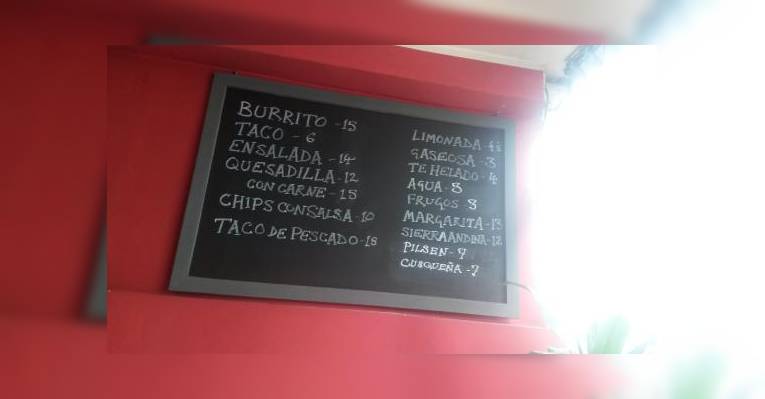 BURRITO - 15
TACO - 6
ENSALADA - 14
QUESADILLA - 12
CON CARNE - 15
CHIPS CON SALSA - 10
TACO DE PESCADO - 18
LIMONADA
GASEOSA - 3
TE HELADO - 4
AGUA - 3
FRUGOS 3
MARGARITA - 15
SIERRA ANDINA - 12
PILSEN - 7
CUSQUEÑA - 7